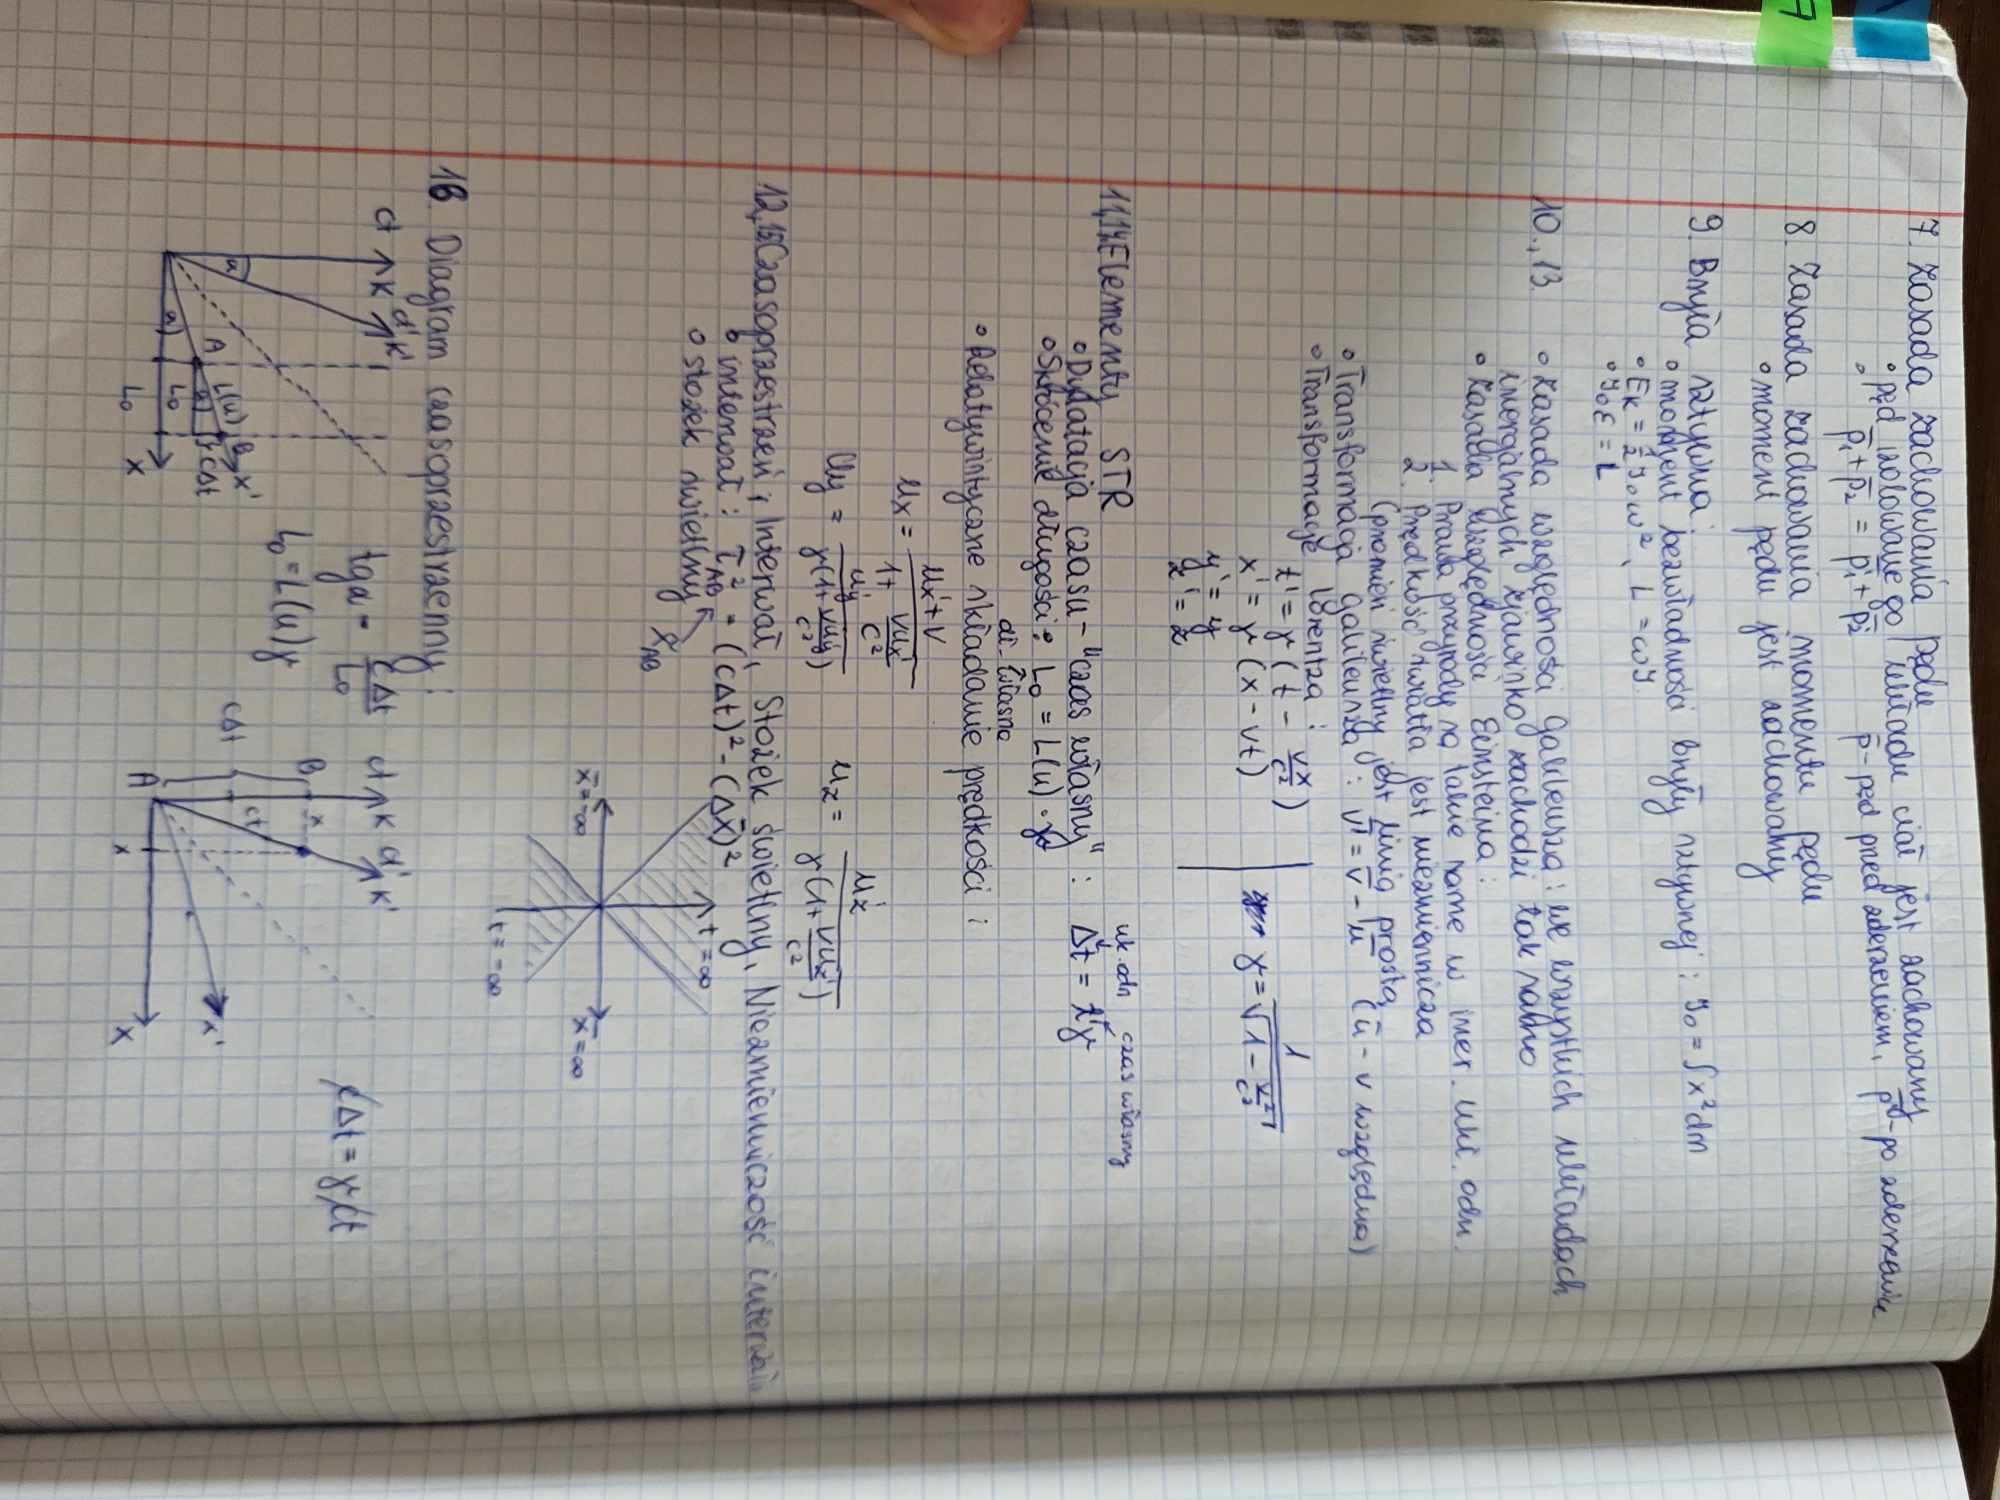 7. Zasada zachowania pędu
° pęd izolowanego układu ciał jest zachowany
° p̄₁ + p̄₂ = p̄₁' + p̄₂' p̄ - pęd przed zderzeniem, p̄' - po zderzeniu
8. Zasada zachowania momentu pędu
° moment pędu jest zachowany
9. Bryła sztywna:
° moment bezwładności bryły sztywnej: I₀ = ∫x²dm
° Eₖ = 1/2 I₀ω², L = ωI
° I₀ε = L
10., 13. ° Zasada względności Galileusza: we wszystkich układach
inercjalnych zjawisko zachodzi tak samo
° Zasada względności Einsteina:
1. Prawa przyrody są takie same w iner. ukł. odn.
2. Prędkość światła jest niezmiennicza
(promień świetlny jest linią prostą)
° Transformacja Galileusza: v̄' = v̄ - ū (ū - v względna)
° Transformacje Lorentza:
t' = γ(t - vx/c²) γ = 1/√(1 - v²/c²)
x' = γ(x - vt)
y' = y
z' = z
11, 14, Elementy STR
uk. odn czas własny
° Dylatacja czasu - "czas własny": Δt = t'γ
° Skrócenie długości: L₀ = L(u)·γ
dł. własna
° Relatywistyczne składanie prędkości:
uₓ = (uₓ' + v)/(1 + vuₓ'/c²)
u_y = u_y'/(γ(1 + vuₓ'/c²)) u_z = u_z'/(γ(1 + vuₓ'/c²))
12, 15, Czasoprzestrzeń, Interwał, Stożek świetlny, Niezmienniczość interwału
° interwał: τ̃²_AB = (cΔt)² - (Δx̄)²
° stożek świetlny x̄_AB
t = ∞
x̄ = -∞ x̄ = ∞
t = -∞
16. Diagram czasoprzestrzenny:
ct K ct' K'
A L(u) B x'
cΔt
α α α
L₀ L₀ x
tgα = cΔt/L₀
L₀ = L(u)γ
ct K ct' K'
B x
cΔt ct'
A x x' x
cΔt = γct